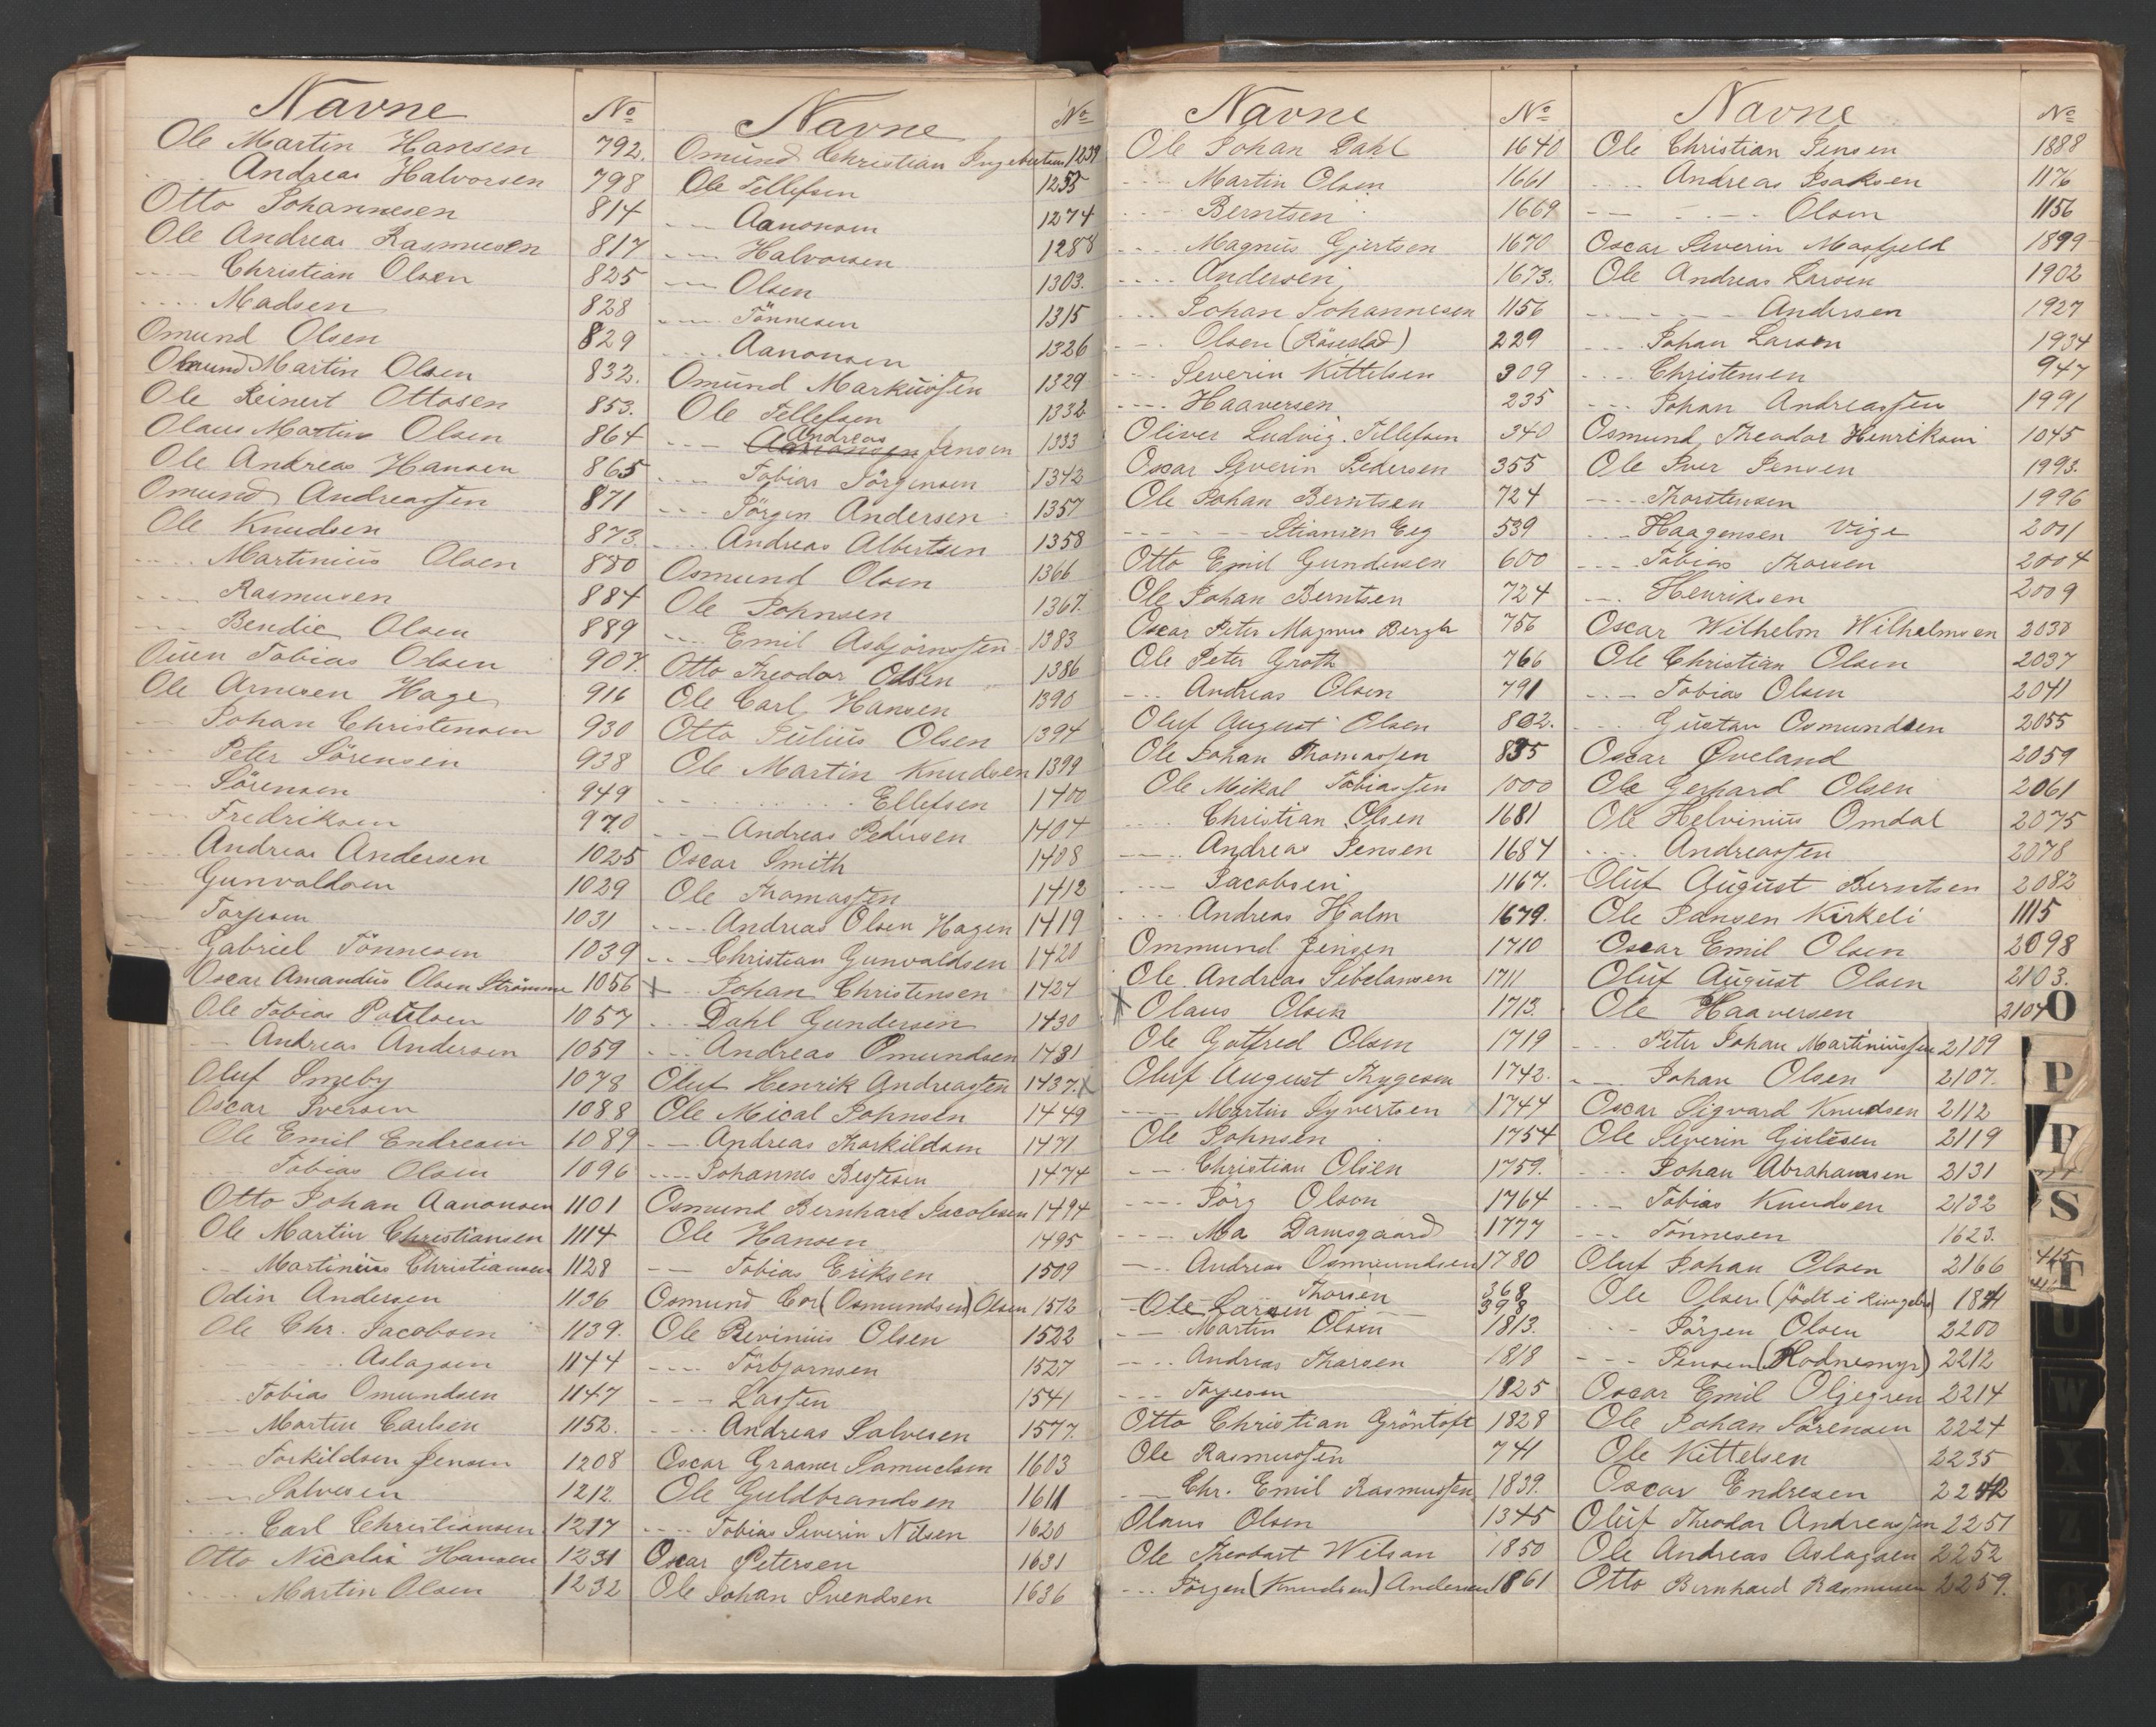 Navne No
Ole Martin Hansen 792.
.... Andreas Halvorsen 798
Otto Johannesen 814
Ole Andreas Rasmusen 817
---- Christian Olsen 825
.... Madsen 828
Omund Olsen 829
Omund Martin Olsen 832.
Ole Reinert Ottosen 853.
Olaus Martin Olsen 864
Ole Andreas Hansen 865
Omund Andreassen 871
Ole Knudsen 873.
.... Martinius Olsen 880
---- Rasmusen 884
--- Bendic Olsen 889
Ouen Tobias Olsen 907.
Ole Arnesen Hage 916
--- Johan Christensen 930
---- Peter Sörensen 938
---- Sörensen 949
---- Fredriksen 970
---- Andreas Andersen 1025
---- Gunvaldsen 1029
---- Torjesen 1031
---- Gabriel Tönnesen 1039
Oscar Amandus Olsen Strömme 1056
Ole Tobias Poulsen 1057
--- Andreas Andersen 1059
Oluf Smeby 1078
Oscar Iversen 1088
Ole Emil Endresen 1089
---- Tobias Olsen 1096
Otto Johan Aanonsen 1101
Ole Martin Christiansen 1114
--- Martinius Christiansen 1128
Odin Andersen 1136
Ole Chr. Jacobsen 1139.
------ Aslagsen 1144
... Tobias Omundsen 1147
---- Martin Carlsen 1152.
---- Torkildsen Jensen 1208
---- Salvesen 1212.
.... Carl Christiansen 1217
Otto Nicolai Hansen 1231
.... Martin Olsen 1232
Navne No
Omund Christian Ingebretsen 1239
Ole Tellefsen 1255
---- Aanonsen 1274
---- Halvorsen 1288
---- Olsen 1303.
---- Tönnesen 1315
.... Aanonsen 1326
Omund Markussen 1329
Ole Tellefsen 1332
---- Andreas Jensen 1333
.... Tobias Jörgensen 1342
--- Jörgen Andersen 1357
.... Andreas Albertsen 1358
Osmund Olsen 1366
Ole Johnsen 1367.
.... Emil Asbjörnssen 1383
Otto Theodor Olsen 1386
Ole Carl Hansen 1390
Otto Julius Olsen 1394
Ole Martin Knudsen 1399
-------- Ellefsen 1400
---- Andreas Pedersen 1404
Oscar Smith 1408
Ole Thomassen 1412
---- Andreas Olsen Hagen 1419
--- Christian Gunvaldsen 1420
x -- Johan Christensen 1424
... Dahl Gundersen 1430
... Andreas Omundsen 1431
Oluf Henrik Andreassen 1437. x
Ole Mical Johnsen 1449
--- Andreas Thorkildsen 1471
---- Johannes Bessesen 1474
Osmund Bernhard Jacobsen 1494
Ole Hansen 1495
--- Tobias Eriksen 1509
Osmund Cor (Osmundsen) Olsen 1512
Ole Revinius Olsen 1522
---- Torbjornsen 1527
--- Lassen 1541
.... Andreas Salvesen 1577.
Oscar Graaner Samuelsen 1603
Ole Guldbrandsen 1611
---- Tobias Severin Nilsen 1620
Oscar Petersen 1631
Ole Johan Svendsen 1636
Navne No
Ole Johan Dahl 1640
--- Martin Olsen 1661
.... Berntsen 1669
.... Magnus Gjertsen 1670
.... Andersen 1673.
... Johan Johannesen 1156
--- Olsen (Röseslad) 229
--- Severin Kittelsen 309
---- Haaversen 235
Oliver Ludvig Tellefsen 340
Oscar Severin Pedersen 355
Ole Johan Berntsen 724
------ Stiansen Eeg 539
Otto Emil Gundersen 600
Ole Johan Berntsen 724
Oscar Peter Magnus Bergh 756
Ole Peter Groth 766
--- Andreas Olsen 791
Oluf August Olsen 802.
Ole Johan Thomassen 835
Ole Mikal Tobiassen 1000
.... Christian Olsen 1681
---- Andreas Jensen 1684
---- Jacobsen 1167.
.... Andreas Holm 1679.
Ommund Jensen 1710
Ole Andreas Sibelansen 1711
x Olaus Olsen 1713.
Ole Gotfred Olsen 1719
Oluf August Thygesen 1742.
---- Martin Syvertsen 1744
Ole Johnsen 1754
--- Christian Olsen 1759.
---- Jörg Olson 1764
---- Ma Damsgaard 1777
--- Andreas Osmundsen 1780
Thorsen 368
Ole Larsen 398
--- Martin Olsen 1813.
--- Andreas Thorsen 1818
--- Torjesen 1825
Otto Christian Gröntoft 1828
Ole Rasmussen 741
--- Chr. Emil Rasmussen 1839.
Olaus Olsen 1345
Ole Theobart Wilson 1850
--- Jörgen (Knudsen) Andersen 1861
Navne No
Ole Christian Jensen 1888
.... Andreas Isaksen 1176
------ Olsen 1156
Oscar Severin Mosfjeld 1899
Ole Andreas Larsen 1902
------ Andersen 1927
--- Johan Larsen 1934
--- Christensen 947
--- Johan Andreassen 1991
Osmund Theodor Henriksen 1045
Ole Iver Jensen 1993.
---- Thorstensen 1996
--- Haagensen Vige 2001
---- Tobias Thorsen 2004
--- Henriksen 2009
Oscar Wilhelm Wilhelmsen 2030
Ole Christian Olsen 2037
--- Tobias Olsen 2041
... Gustav Osmundsen 2055
Oscar Øveland 2059
Ole Gerhard Olsen 2061
Ole Helvinius Omdal 2075
.... Andreassen 2078
Oluf August Berntsen 2082
Ole Jansen Kirkeli 1115
Oscar Emil Olsen 2098
Oluf August Olsen 2103.
Ole Haaversen 2104
--- Peter Johan Martiniussen 2109
--- Johan Olsen 2107.
Oscar Sigvard Knudsen 2112
Ole Severin Gislesen 2119
--- Johan Abrahamsen 2131
--- Tobias Knudsen 2132
--- Tönnesen 1623.
Oluf Johan Olsen 2166
Ole Olsen (födt i 1841
--- Jörgen Olsen 2200
--- Jensen (Hodnemyr) 2212
Oscar Emil Oljegren 2214
Ole Johan Sörensen 2224
Ole Kittelsen 2235
Oscar Endresen 2242
Oluf Theodor Andreassen 2251
Ole Andreas Aslagsen 2252
Otto Bernhard Rasmusen 2259.
O
P
R
S
T
U
W
X